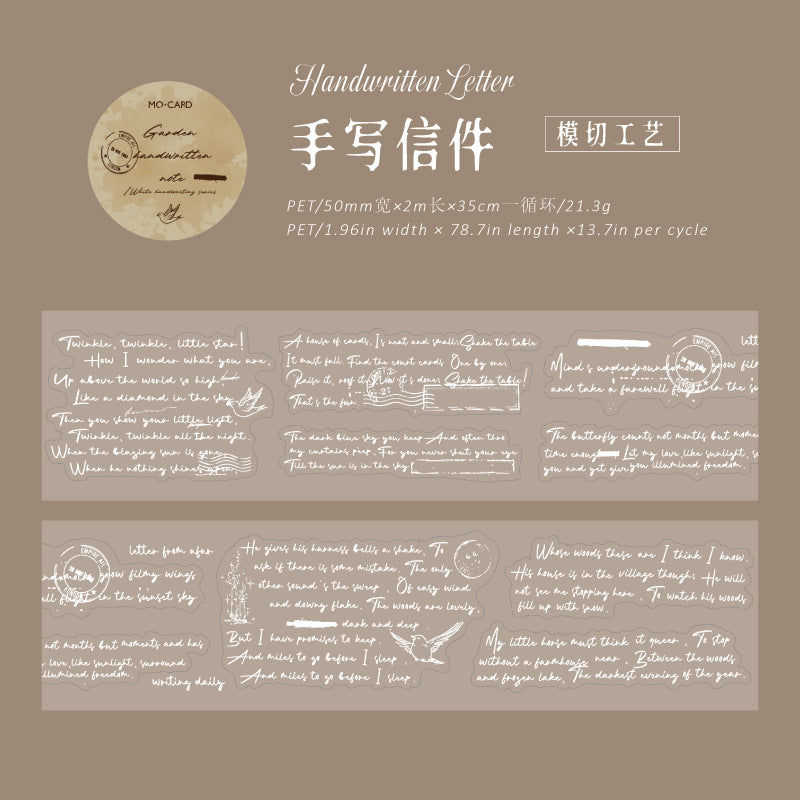 Handwritten Letter
手写信件
模切工艺
PET/50mm宽×2m长×35cm一循环/21.3g
PET/1.96in width × 78.7in length ×13.7in per cycle
MO·CARD
Garden
handwritten
note
EMPIRE AVE.
LONDON
White handwriting series
Twinkle, twinkle, little star!
How I wonder what you are.
Up above the world so high
Like a diamond in the sky
Then you show your little light,
Twinkle, twinkle all the night.
When the blazing sun is gone
When he nothing shines upon
A house of cards. Is neat and small: Shake the table
It must fall. Find the court cards. One by one;
Raise it, roof it, Now it's done; Shake the table!
That's the fun.
The dark blue sky you keep And often thro
my curtains peep. For you never shut your eye
Till the sun is in the sky
EMPIRE AVE.
Mind's underground moths grow fil
and take a farewell flight in the s
lett
The butterfly counts not months but mome
time enough Let my love like sunlight, s
you and yet give you illumined freedom.
EMPIRE AVE.
letter from afar
nd moths grow filmy wings
ell flight in the sunset sky
not months but moments and has
love like sunlight, surround
illumined freedom.
writing daily
He gives his harness bells a shake, To
ask if there is some mistake. The only
other sound's the sweep Of easy wind
and downy flake. The woods are lovely,
dark and deep
But I have promises to keep.
And miles to go before I sleep
And miles to go before I sleep.
Whose woods these are I think I know.
His house is in the village though; He will
not see me stopping here To watch his woods
fill up with snow.
My little horse must think it queer. To stop
without a farmhouse near. Between the woods
and frozen lake. The darkest evening of the year.